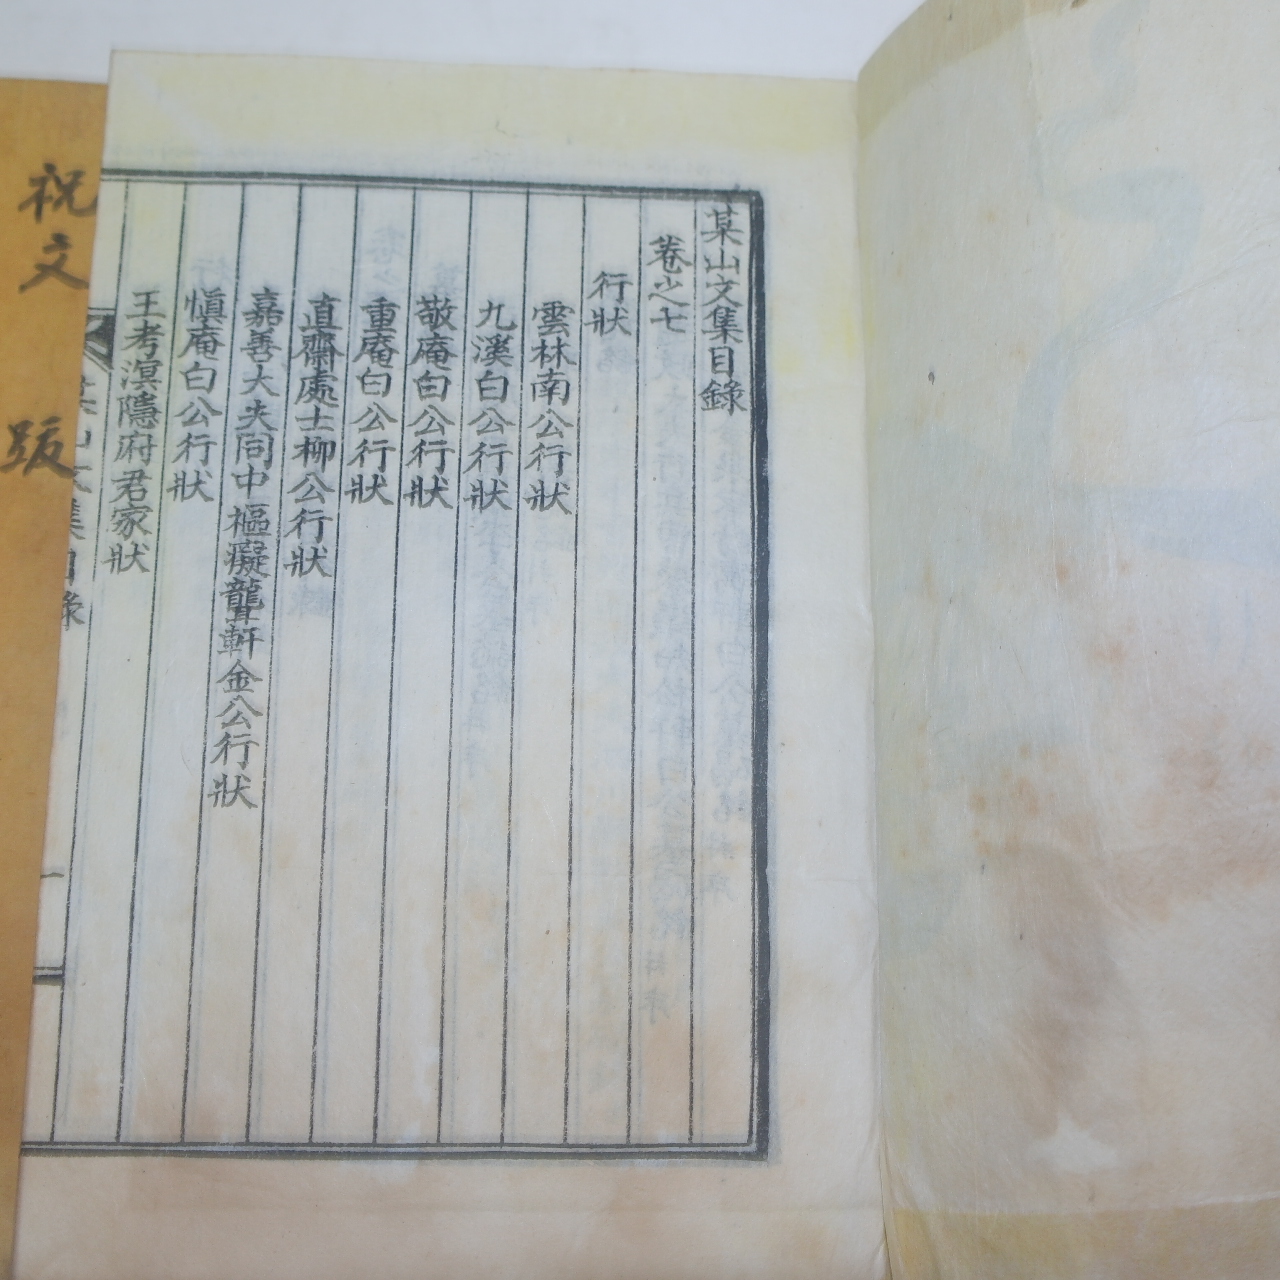 某山文集目錄
卷之七
行狀
雲林南公行狀
九溪白公行狀
敬庵白公行狀
重庵白公行狀
直齋處士柳公行狀
嘉善大夫同中樞癡聾軒金公行狀
愼庵白公行狀
王考溟隱府君家狀
某山文集目錄
一
祝文
跋